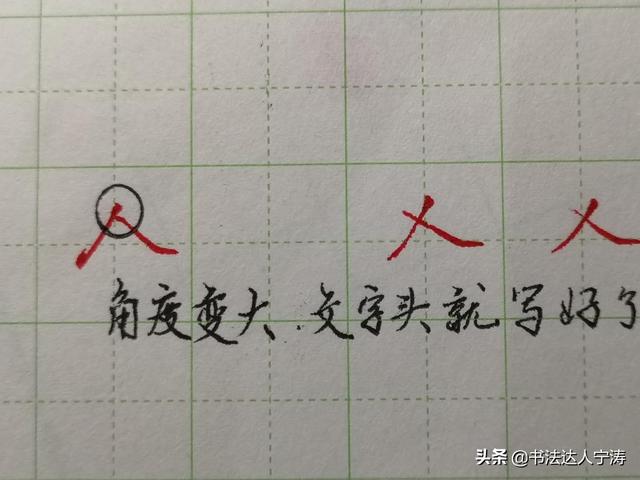 人 人 人
角度变大.文字头就写好了
头条 @书法达人宁涛